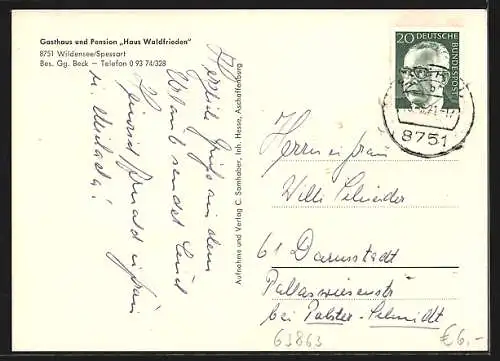 Gasthaus und Pension „Haus Waldfrieden"
8751 Wildensee/Spessart
Bes. Gg. Beck — Telefon 0 93 74/328
Herzliche Grüße aus dem
Urlaub sendet Euch
Heinrich
Aufnahme und Verlag C. Samhaber, Inh. Hesse, Aschaffenburg
20 DEUTSCHE
BUNDESPOST
8751
Herrn u. Frau
Willi Schneider
61 Darmstadt
Pallaswiesenstr
bei Polster-Schmidt
63863
€ 6,-